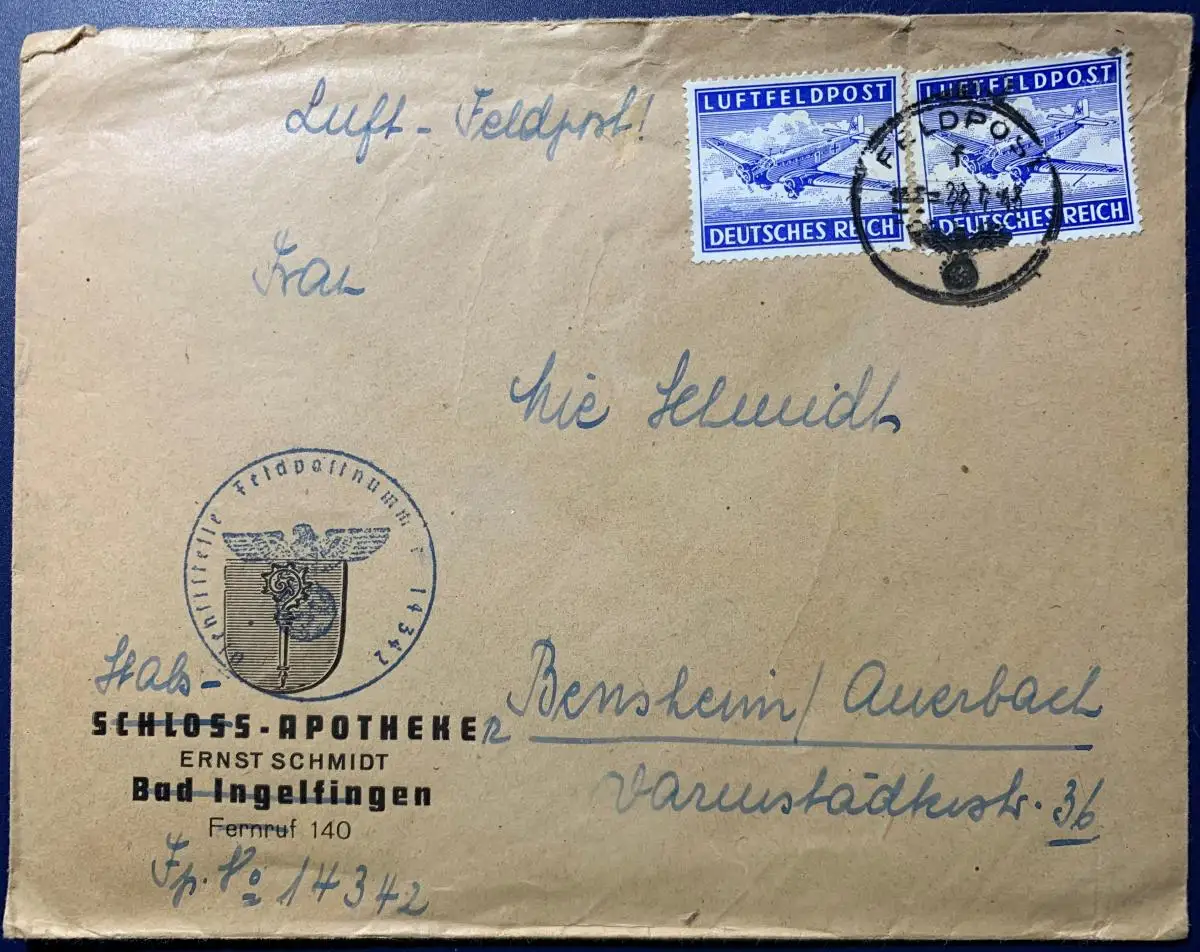 Luft-Feldpost!
LUFTFELDPOST
DEUTSCHES REICH
LUFTFELDPOST
DEUTSCHES REICH
FELDPOST
Frau
Mie Schmidt
Dienststelle Feldpostnummer 14342
Stabs-
SCHLOSS-APOTHEKEr
ERNST SCHMIDT
Bad Ingelfingen
Fernruf 140
Fp. No 14342
Bensheim/Auerbach
Darmstädterstr. 36